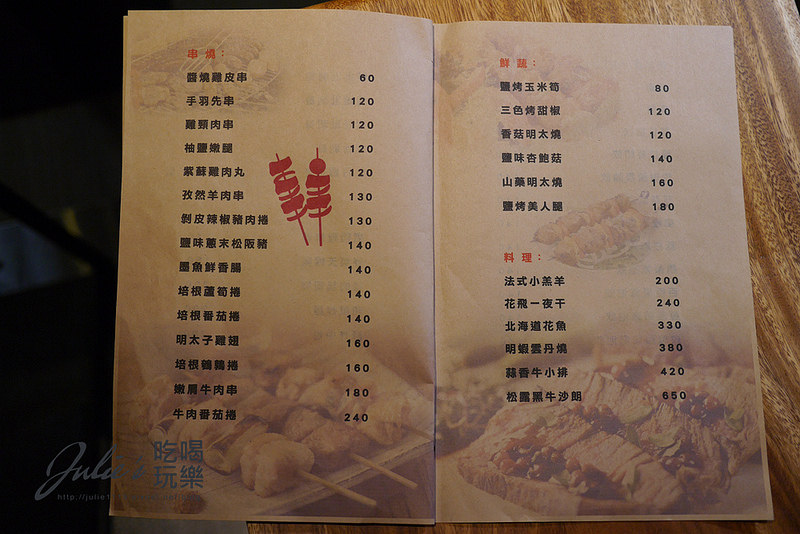 串燒：
醬燒雞皮串 60
手羽先串 120
雞頸肉串 120
柚鹽嫩腿 120
紫蘇雞肉丸 120
孜然羊肉串 130
剝皮辣椒豬肉捲 130
鹽味蔥末松阪豬 140
墨魚鮮香腸 140
培根蘆筍捲 140
培根番茄捲 140
明太子雞翅 160
培根鵪鶉捲 160
嫩肩牛肉串 180
牛肉番茄捲 240
鮮蔬：
鹽烤玉米筍 80
三色烤甜椒 120
香菇明太燒 120
鹽味杏鮑菇 140
山藥明太燒 160
鹽烤美人腿 180
料理：
法式小羔羊 200
花飛一夜干 240
北海道花魚 330
明蝦雲丹燒 380
蒜香牛小排 420
松露黑牛沙朗 650
Julie's 吃喝玩樂